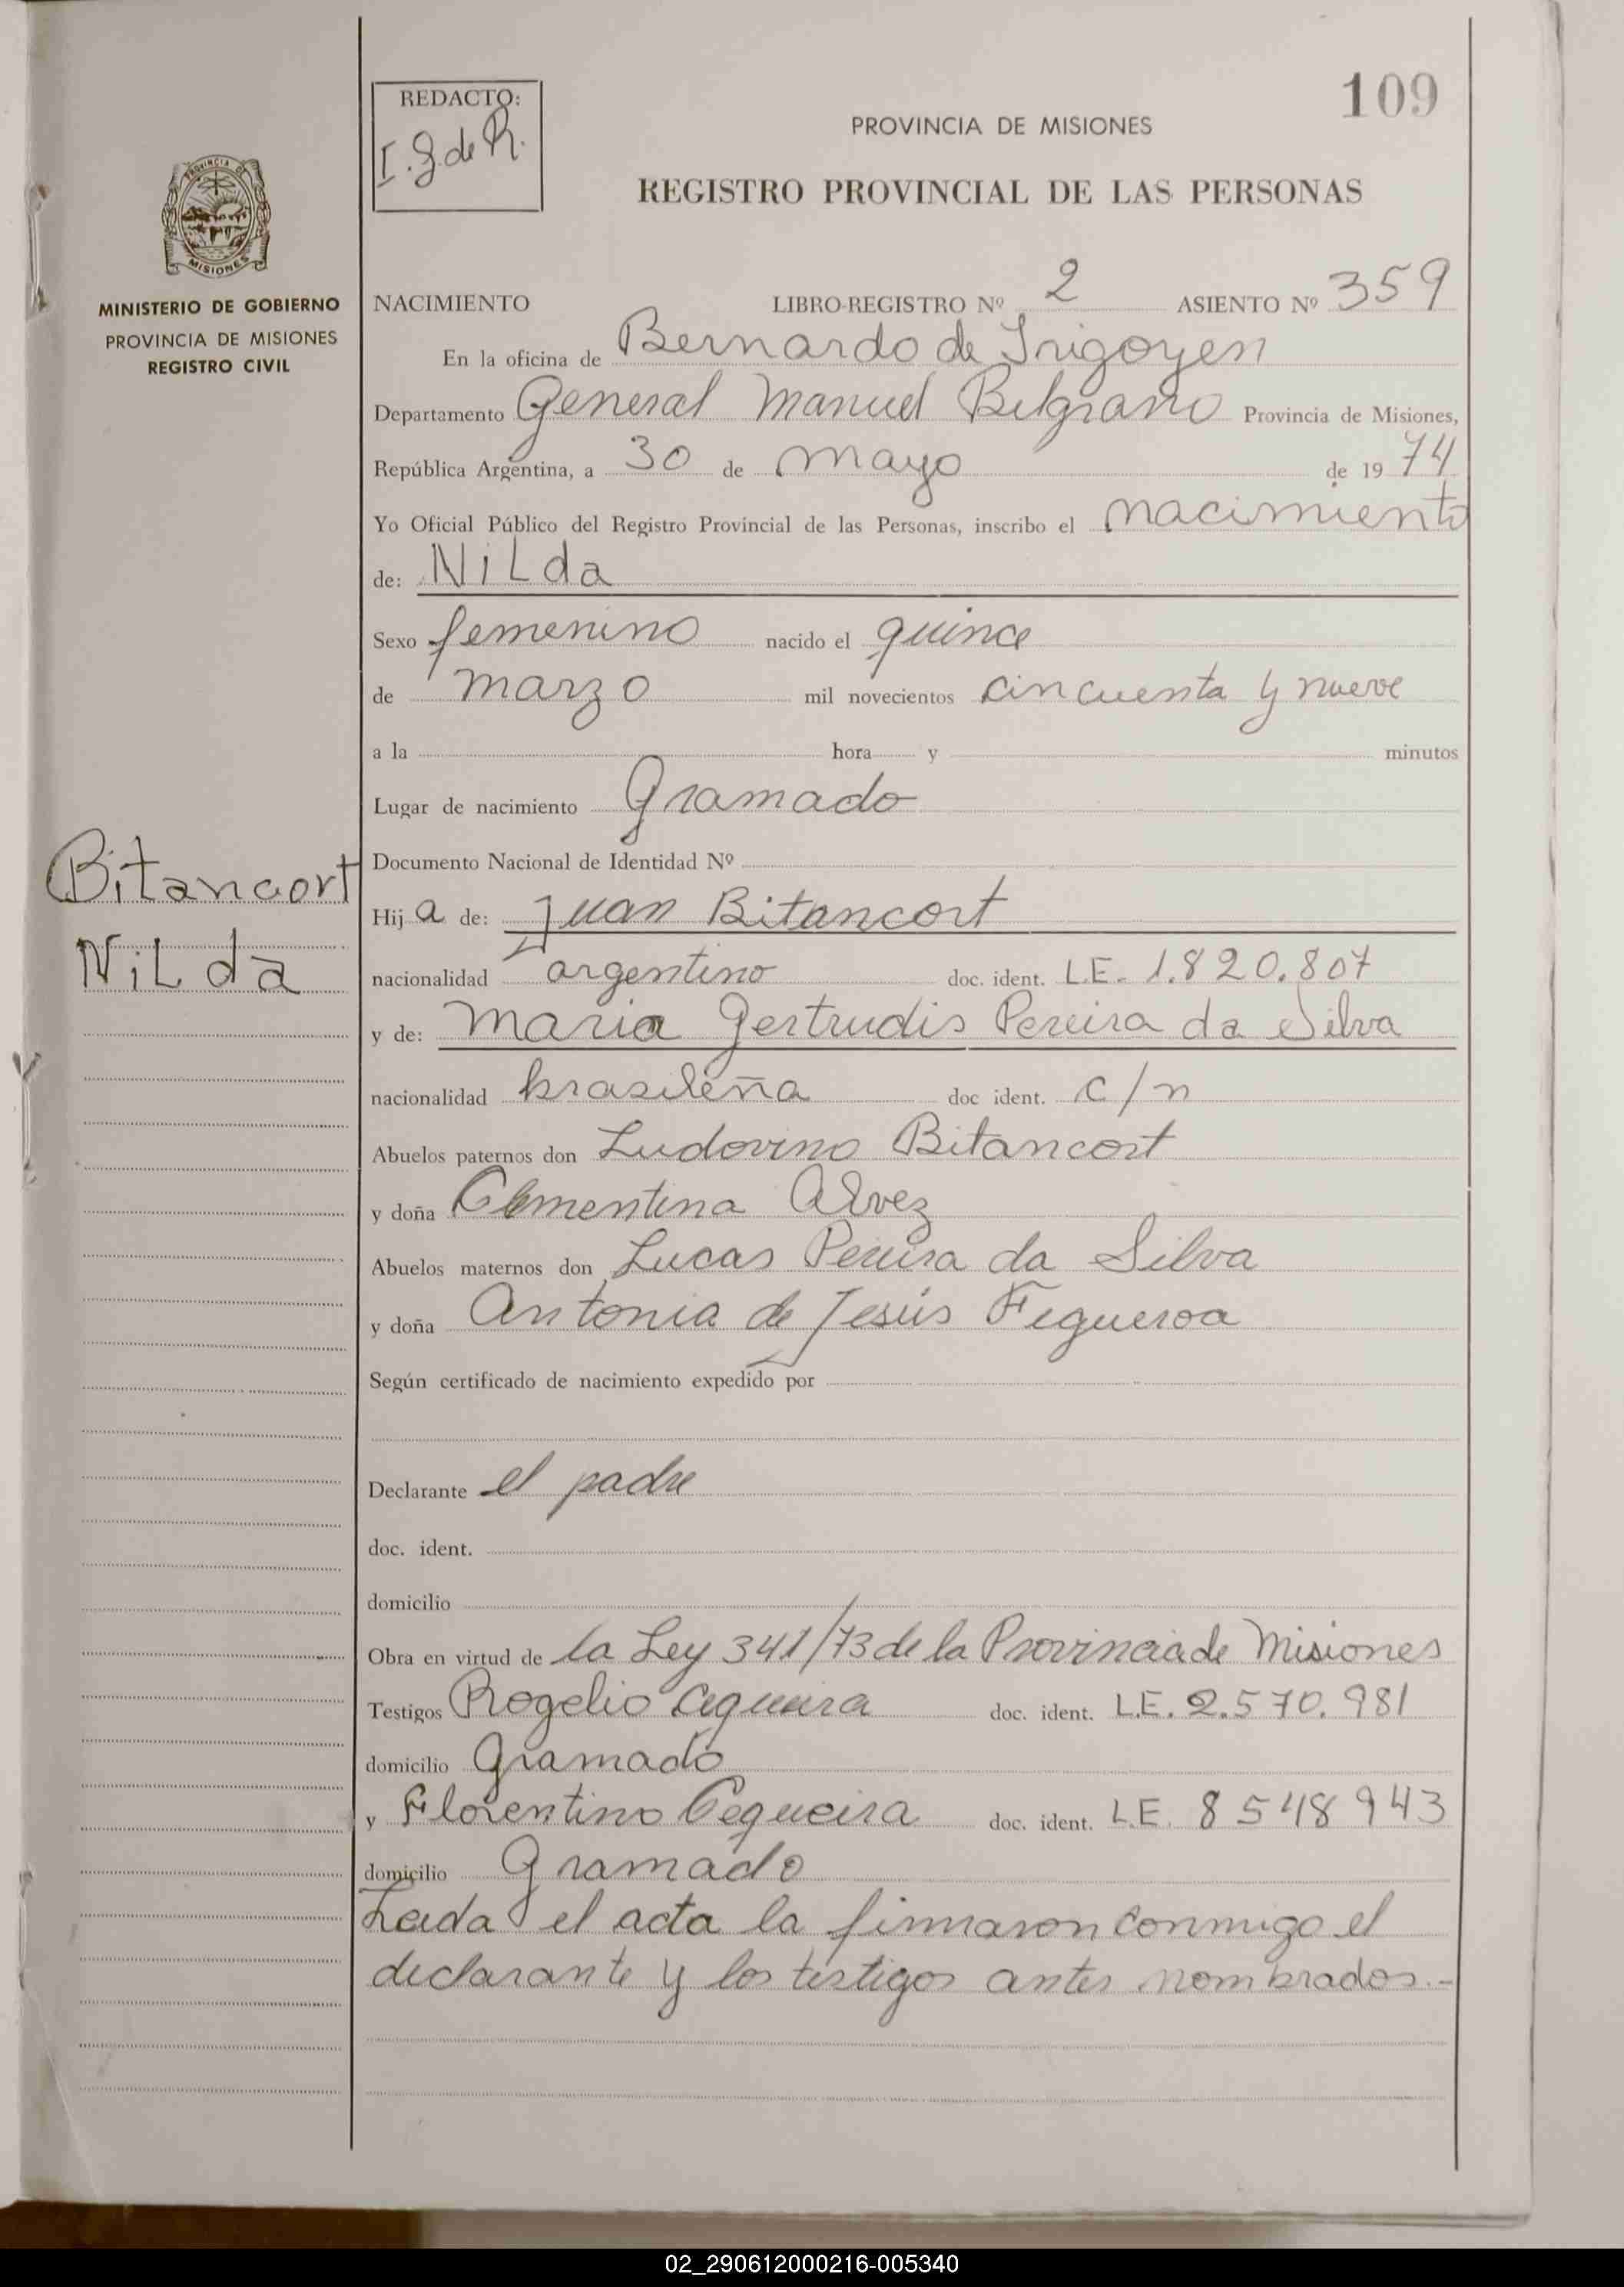 109
REDACTO:
I. G. de R.
PROVINCIA DE MISIONES
REGISTRO PROVINCIAL DE LAS PERSONAS
PROVINCIA DE
MISIONES
MINISTERIO DE GOBIERNO
PROVINCIA DE MISIONES
REGISTRO CIVIL
NACIMIENTO LIBRO-REGISTRO Nº 2 ASIENTO Nº 359
En la oficina de Bernardo de Irigoyen
Departamento General Manuel Belgrano Provincia de Misiones,
República Argentina, a 30 de mayo de 19 74
Yo Oficial Público del Registro Provincial de las Personas, inscribo el nacimiento
de: NiLda
Sexo femenino nacido el quince
de marzo mil novecientos cincuenta y nueve
a la hora y minutos
Lugar de nacimiento Gramado
Documento Nacional de Identidad Nº
Bitancort
NiLda
Hij a de: Juan Bitancort
nacionalidad argentino doc. ident. L.E. 1.820.807
y de: Maria Gertrudis Pereira da Silva
nacionalidad brasileña doc ident. c/n
Abuelos paternos don Ludovino Bitancort
y doña Clementina Alvez
Abuelos maternos don Lucas Pereira da Silva
y doña Antonia de Jesús Figueroa
Según certificado de nacimiento expedido por
Declarante el padre
doc. ident.
domicilio
Obra en virtud de la Ley 341/73 de la Provincia de Misiones
Testigos Rogelio Cequeira doc. ident. L.E. 2.570.981
domicilio Gramado
y Florentino Cequeira doc. ident. L.E. 8548943
domicilio Gramado
Leida el acta la firmaron conmigo el
declarante y los testigos antes nombrados.-
02_290612000216-005340